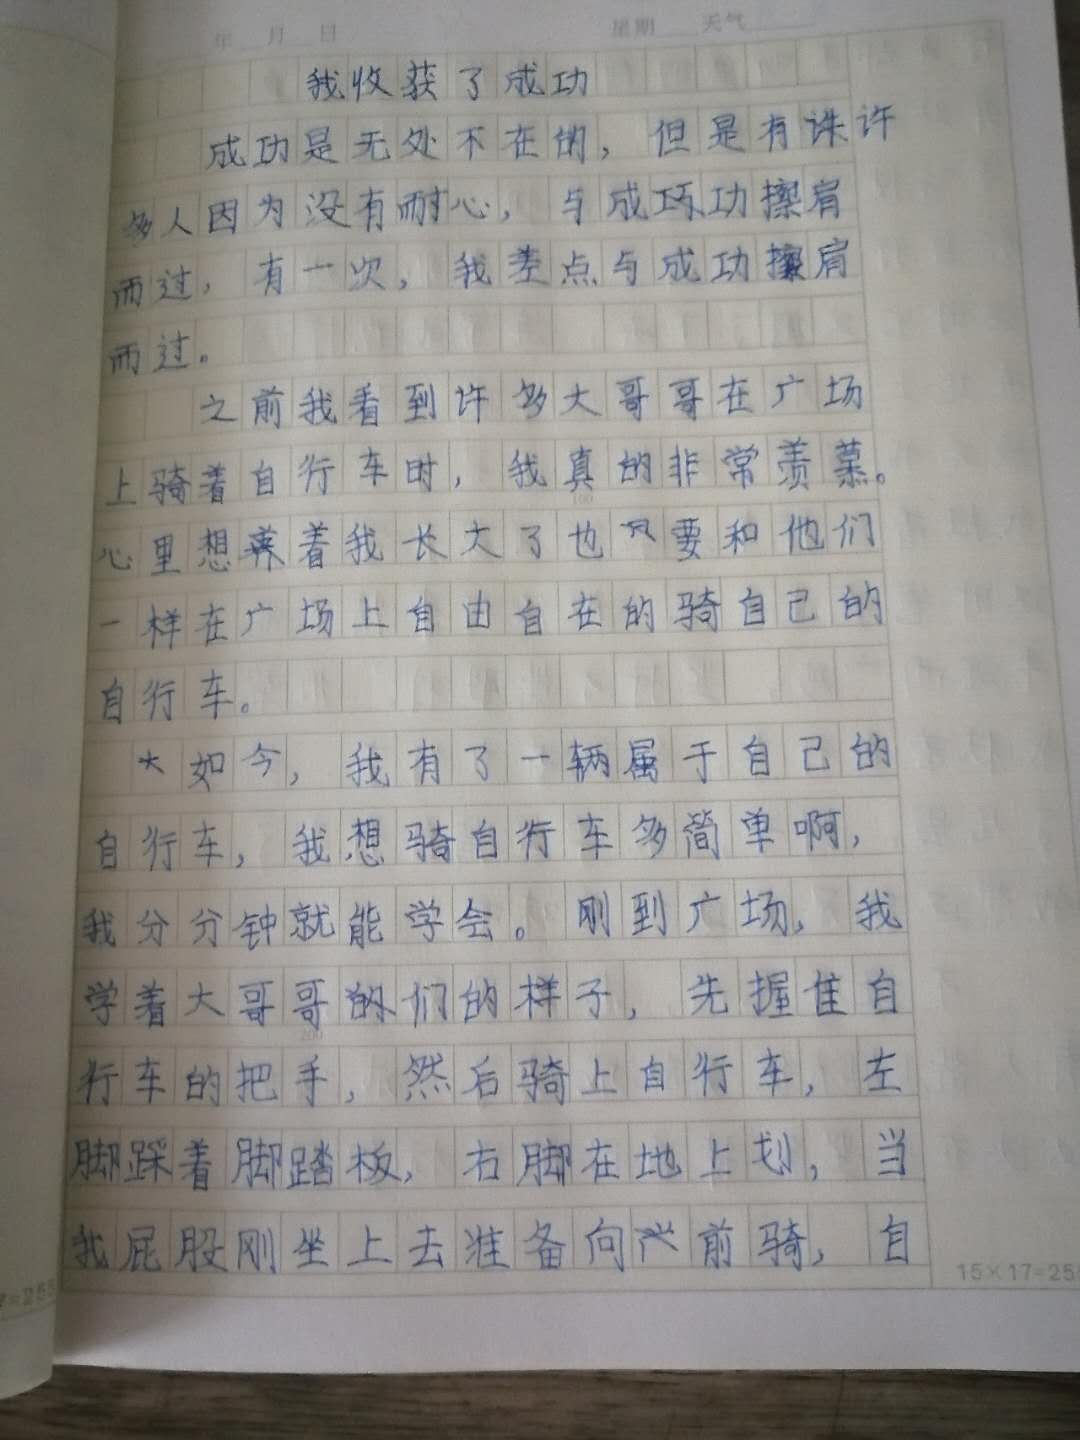 年 月 日 星期 天气
我收获了成功
成功是无处不在的，但是有许
多人因为没有耐心，与成功擦肩
而过，有一次，我差点与成功擦肩
而过。
之前我看到许多大哥哥在广场
上骑着自行车时，我真的非常羡慕。
心里想着我长大了也要和他们
一样在广场上自由自在的骑自己的
自行车。
如今，我有了一辆属于自己的
自行车，我想骑自行车多简单啊，
我分分钟就能学会。刚到广场，我
学着大哥哥们的样子，先握住自
行车的把手，然后骑上自行车，左
脚踩着脚踏板，右脚在地上划，当
我屁股刚坐上去准备向前骑，自
15×17=25